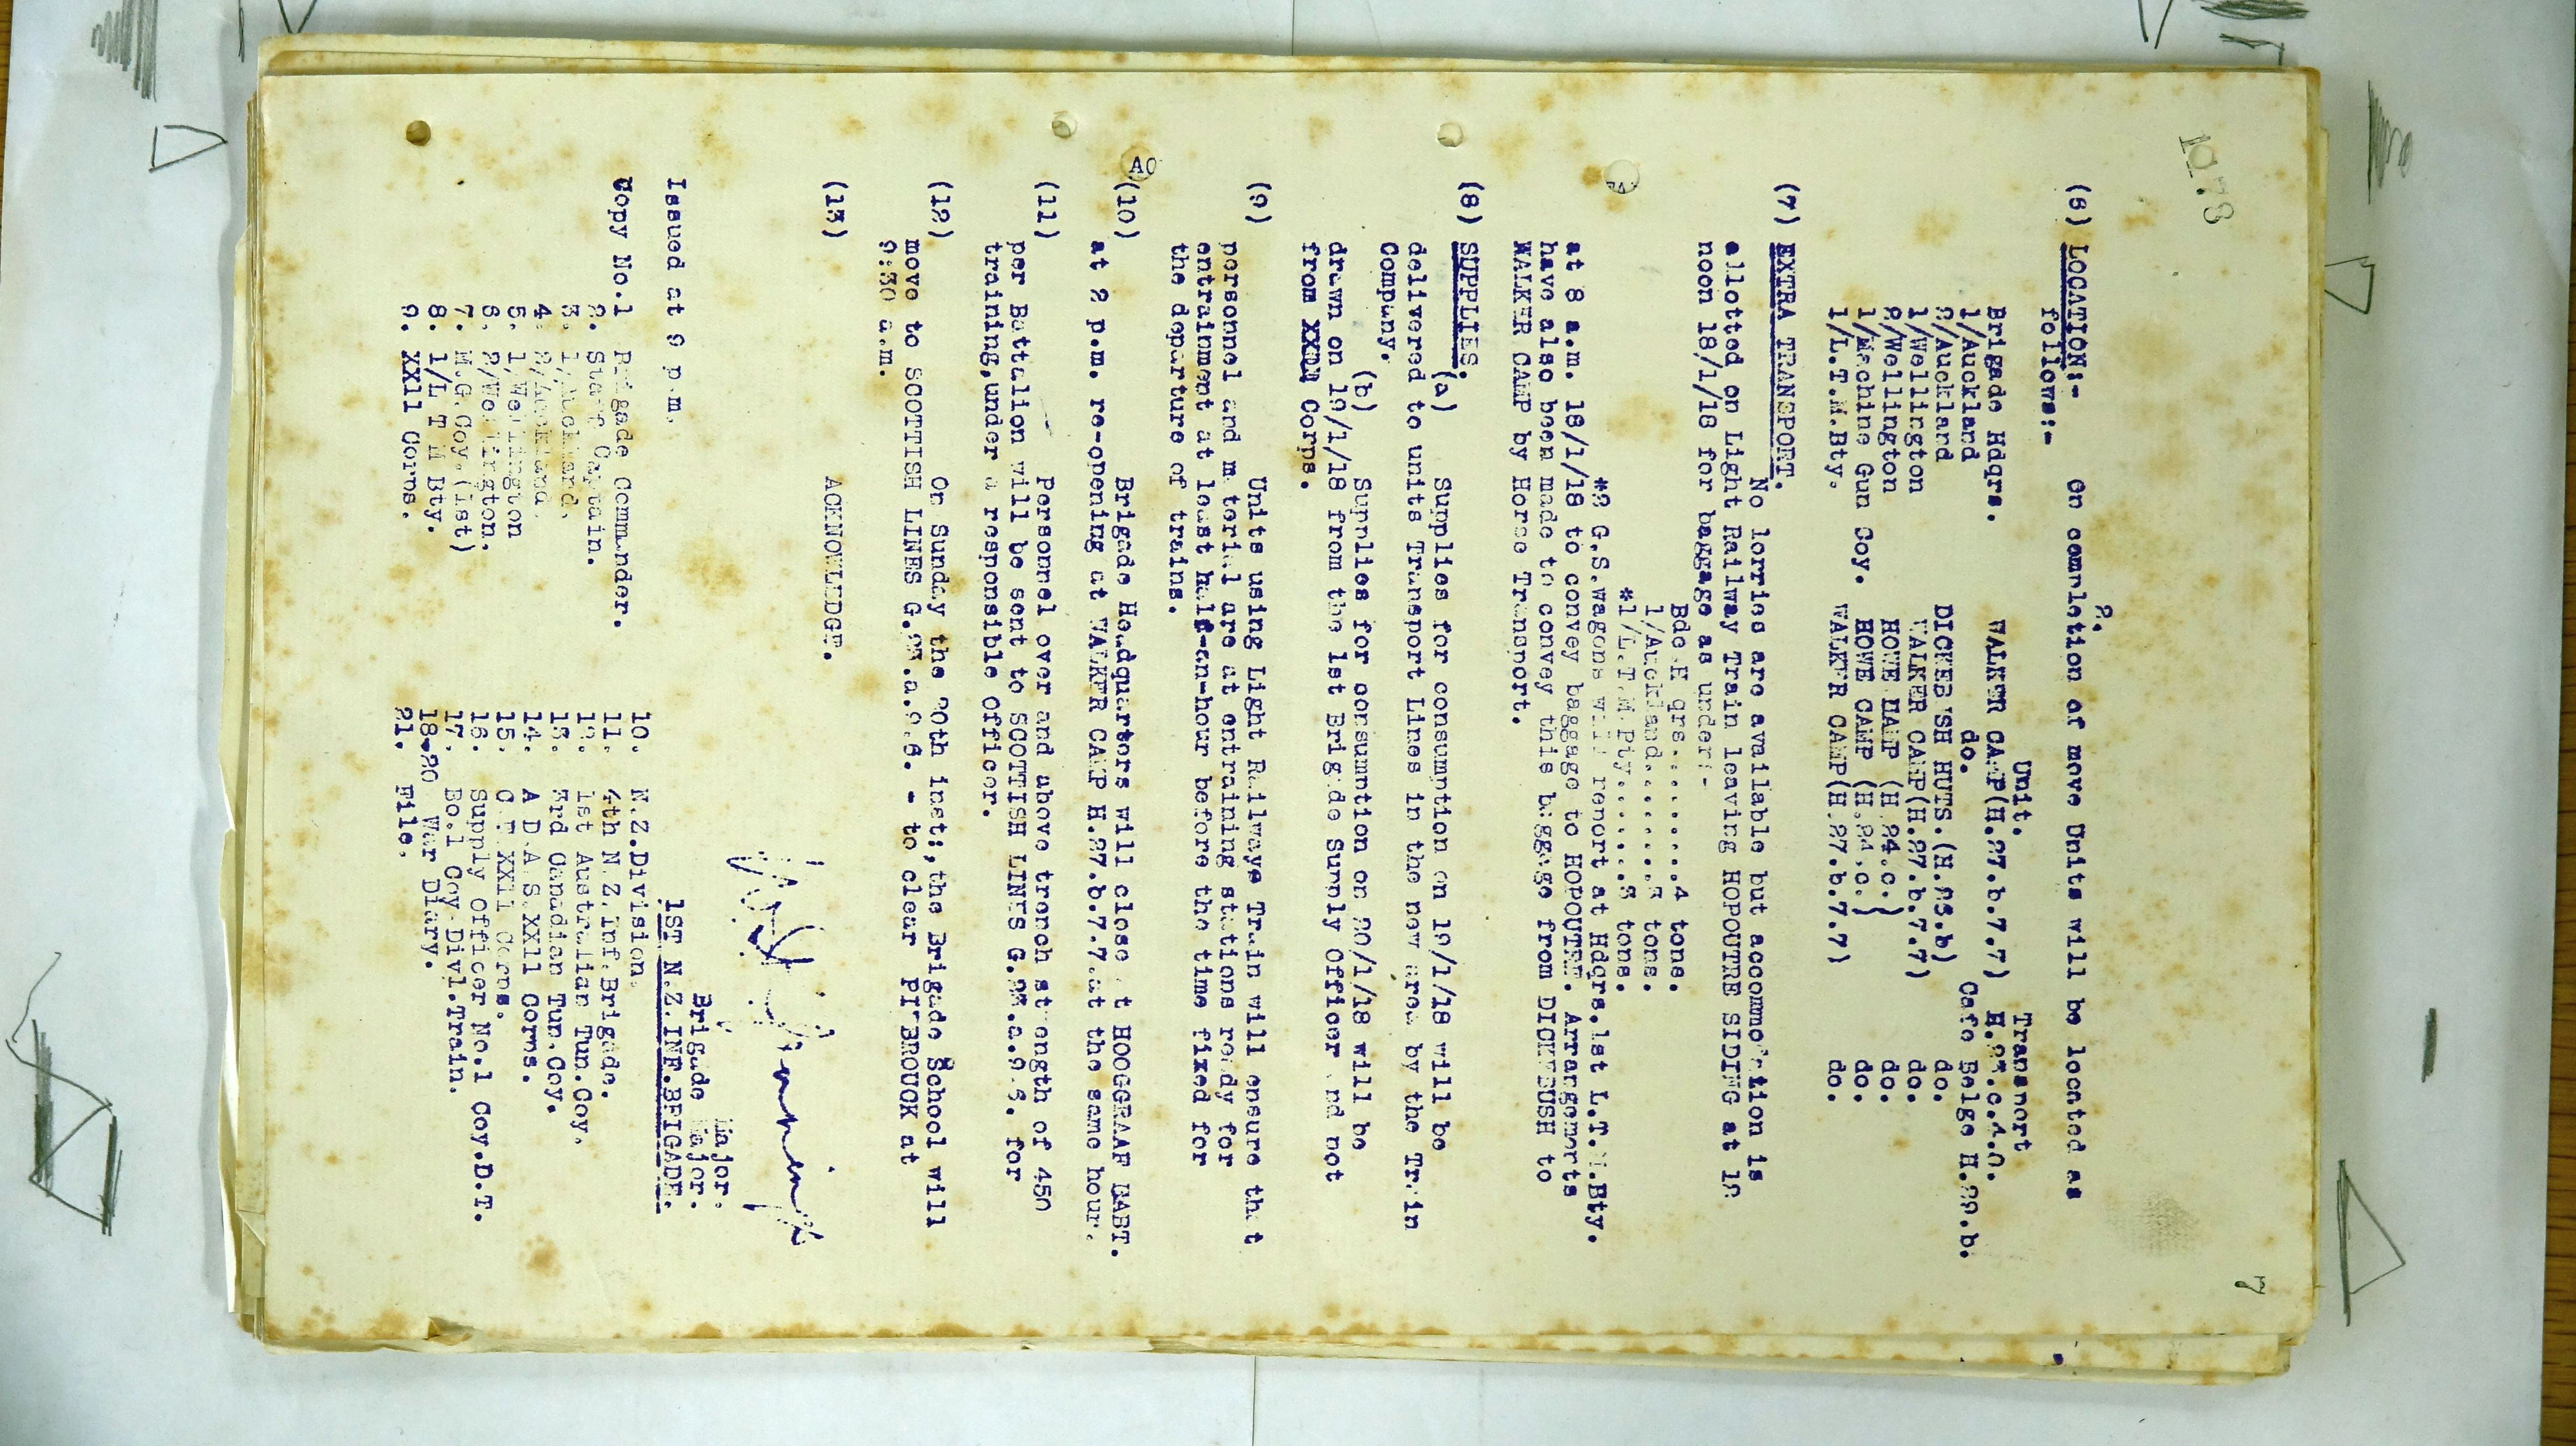 2.
(6) LOCATION:- On completion of move Units will be located as
follows:-
Unit. Transport
Brigade Hdqrs. WALKER CAMP(H.27.b.7.7) H.27.c.4.0.
1/Auckland do. Cafe Belge H.29.b.
2/Auckland DICKEBUSH HUTS.(H.28.b) do.
1/Wellington WALKER CAMP(H.27.b.7.7) do.
2/Wellington HOWE CAMP (H.24.c.} do.
1/Machine Gun Coy. HOWE CAMP (H.24.c.} do.
1/L.T.M.Bty. WALKER CAMP(H.27.b.7.7) do.
(7) EXTRA TRANSPORT.
No lorries are available but accommodation is
allotted on Light Railway Train leaving HOPOUTRE SIDING at 12
noon 18/1/18 for baggage as under:-
Bde H qrs.........4 tons.
1/Auckland........3 tons.
*1/L.T.M.Bty.......3 tons.
*2 G.S.wagons will report at Hdqrs.1st L.T.M.Bty.
at 8 a.m. 18/1/18 to convey baggage to HOPOUTRE. Arrangements
have also been made to convey this baggage from DICKEBUSH to
WALKER CAMP by Horse Transport.
(8) SUPPLIES.
(a) Supplies for consumption on 19/1/18 will be
delivered to units Transport Lines in the new area by the Train
Company.
(b) Supplies for consumption on 20/1/18 will be
drawn on 19/1/18 from the 1st Brigade Supply Officer and not
from Corps.
(9) Units using Light Railwaye Train will ensure that
personnel and material are at entraining stations ready for
entrainment at least half-an-hour before the time fixed for
the departure of trains.
(10) Brigade Headquarters will close at HOOGGRAAF CABT.
at 2 p.m. re-opening at WALKER CAMP H.27.b.7.7.at the same hour.
(11) Personnel over and above trench strength of 450
per Battalion will be sent to SCOTTISH LINES G.23.a.9.8. for
training,under a responsible officer.
(12) On Sunday the 20th inst:,the Brigade School will
move to SCOTTISH LINES G.23.a.9.8. - to clear PIEBROUCK at
9:30 a.m.
(13) ACKNOWLEDGE.
Major.
Brigade Major.
1ST N.Z.INF.BRIGADE.
Issued at 9 p.m.
Copy No.1 Brigade Commander.
2. Staff Captain.
3. 1/Auckland.
4. 2/Auckland.
5. 1/Wellington
6. 2/Wellington.
7. M.G.Coy.(1st)
8. 1/L T M Bty.
9. XX11 Corps.
10. N.Z.Division.
11. 4th N.Z.Inf.Brigade.
12. 1st Australian Tun.Coy.
13. 3rd Canadian Tun.Coy.
14. A D A S XX11 Corps.
15. XX11 Corps.
16. Supply Officer No.1 Coy.D.T.
17. No.1 Coy Divl.Train.
18-20 War Diary.
21. File.